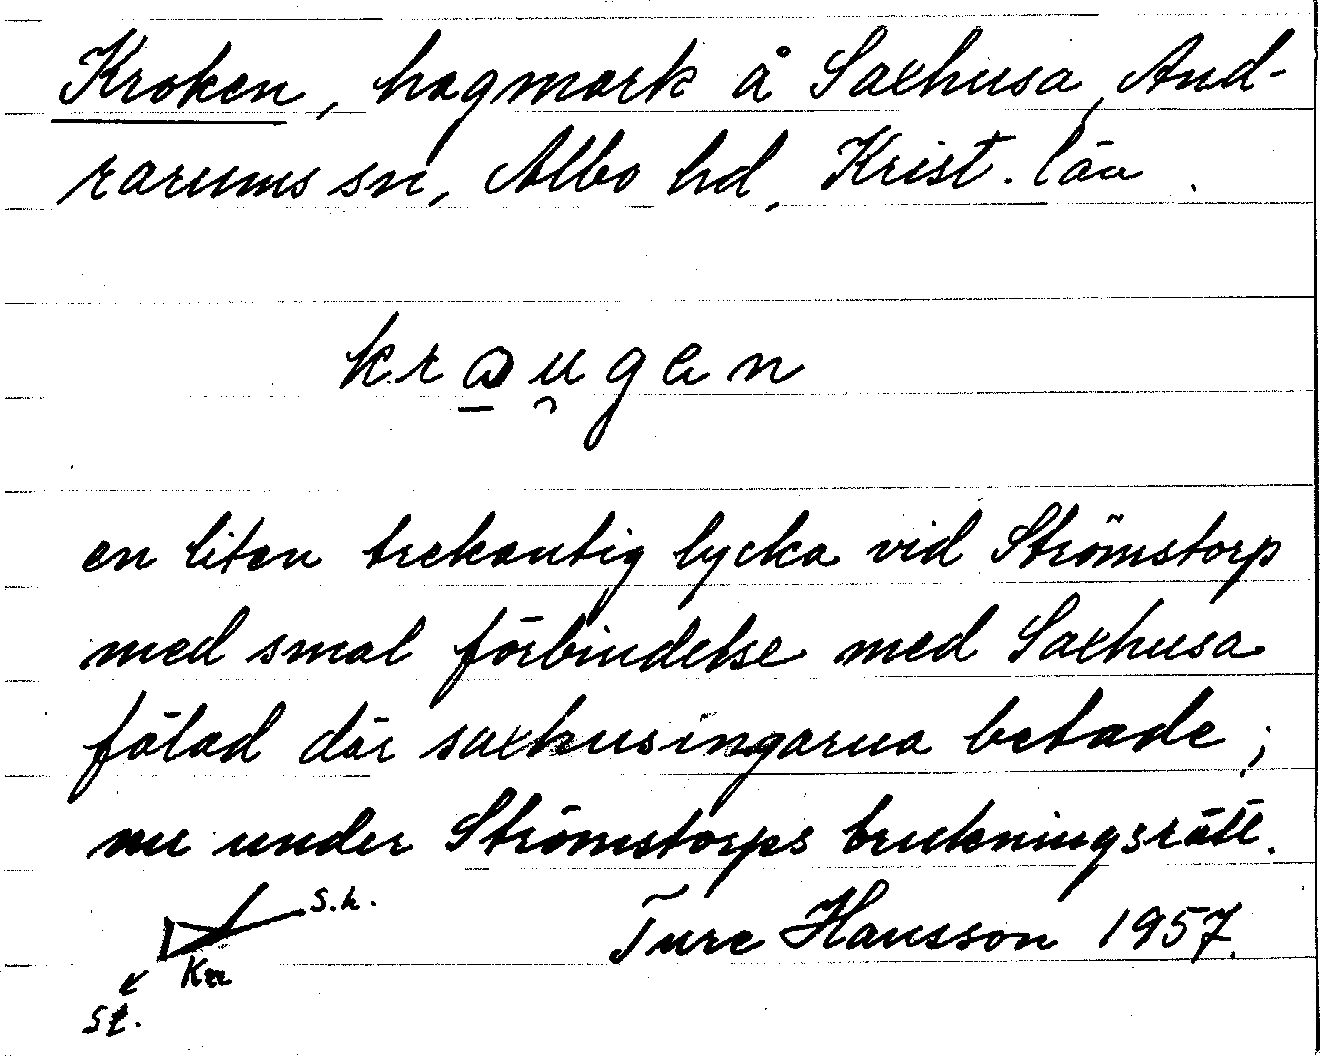 Kroken, hagmark å Saxhusa, And-
rarums sn, Albo hd, Krist. län.
kraugen
en liten trekantig lycka vid Strömstorp
med smal förbindelse med Saxhusa
fälad där saxhusingarna betade;
nu under Strömstorps brukningsrätt.
S.h.
Kr
St.
Ture Hansson 1957.